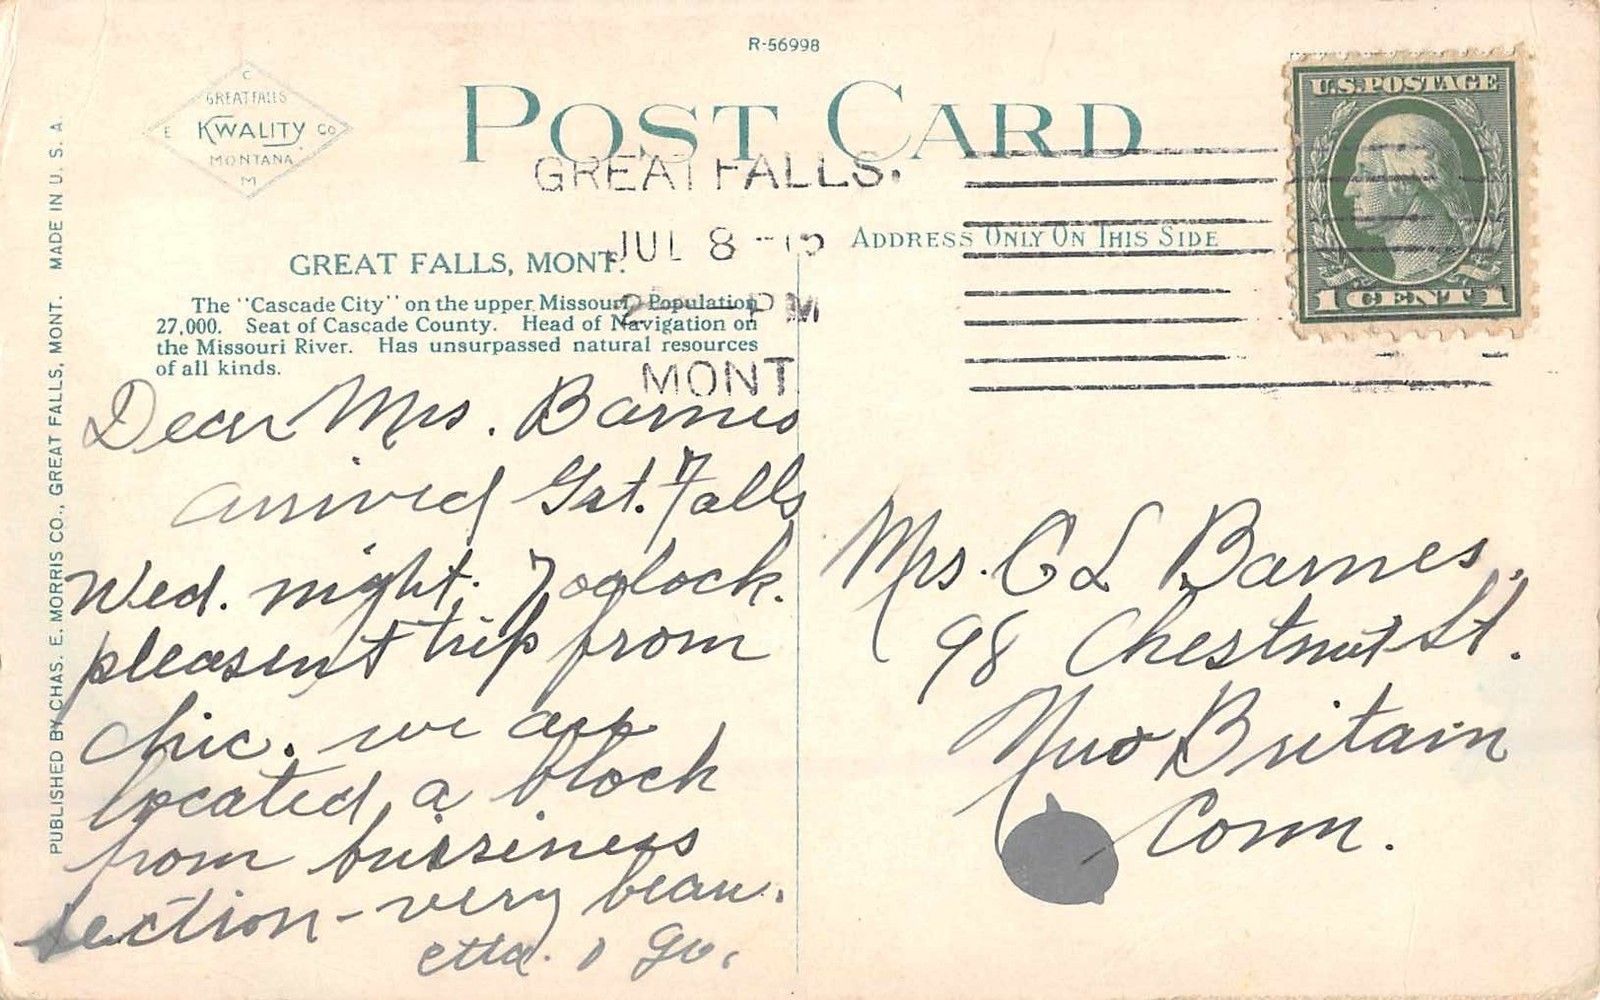 R-56998
C
GREAT FALLS
E KWALITY CO
MONTANA
M
POST CARD
GREAT FALLS.
JUL 8 -15
PM
MONT
U.S. POSTAGE
1 CENT 1
ADDRESS ONLY ON THIS SIDE
GREAT FALLS, MONT.
The "Cascade City" on the upper Missouri, Population
27,000. Seat of Cascade County. Head of Navigation on
the Missouri River. Has unsurpassed natural resources
of all kinds.
PUBLISHED BY CHAS. E. MORRIS CO., GREAT FALLS, MONT. MADE IN U. S. A.
Dear Mrs. Barnes
arrived Grt. Falls
Wed. night. 7 oclock.
pleasent trip from
Chic. we are
located a block
from bussiness
section - very beau.
Mrs. C L Barnes,
98 Chestnut St.
New Britain
Conn.